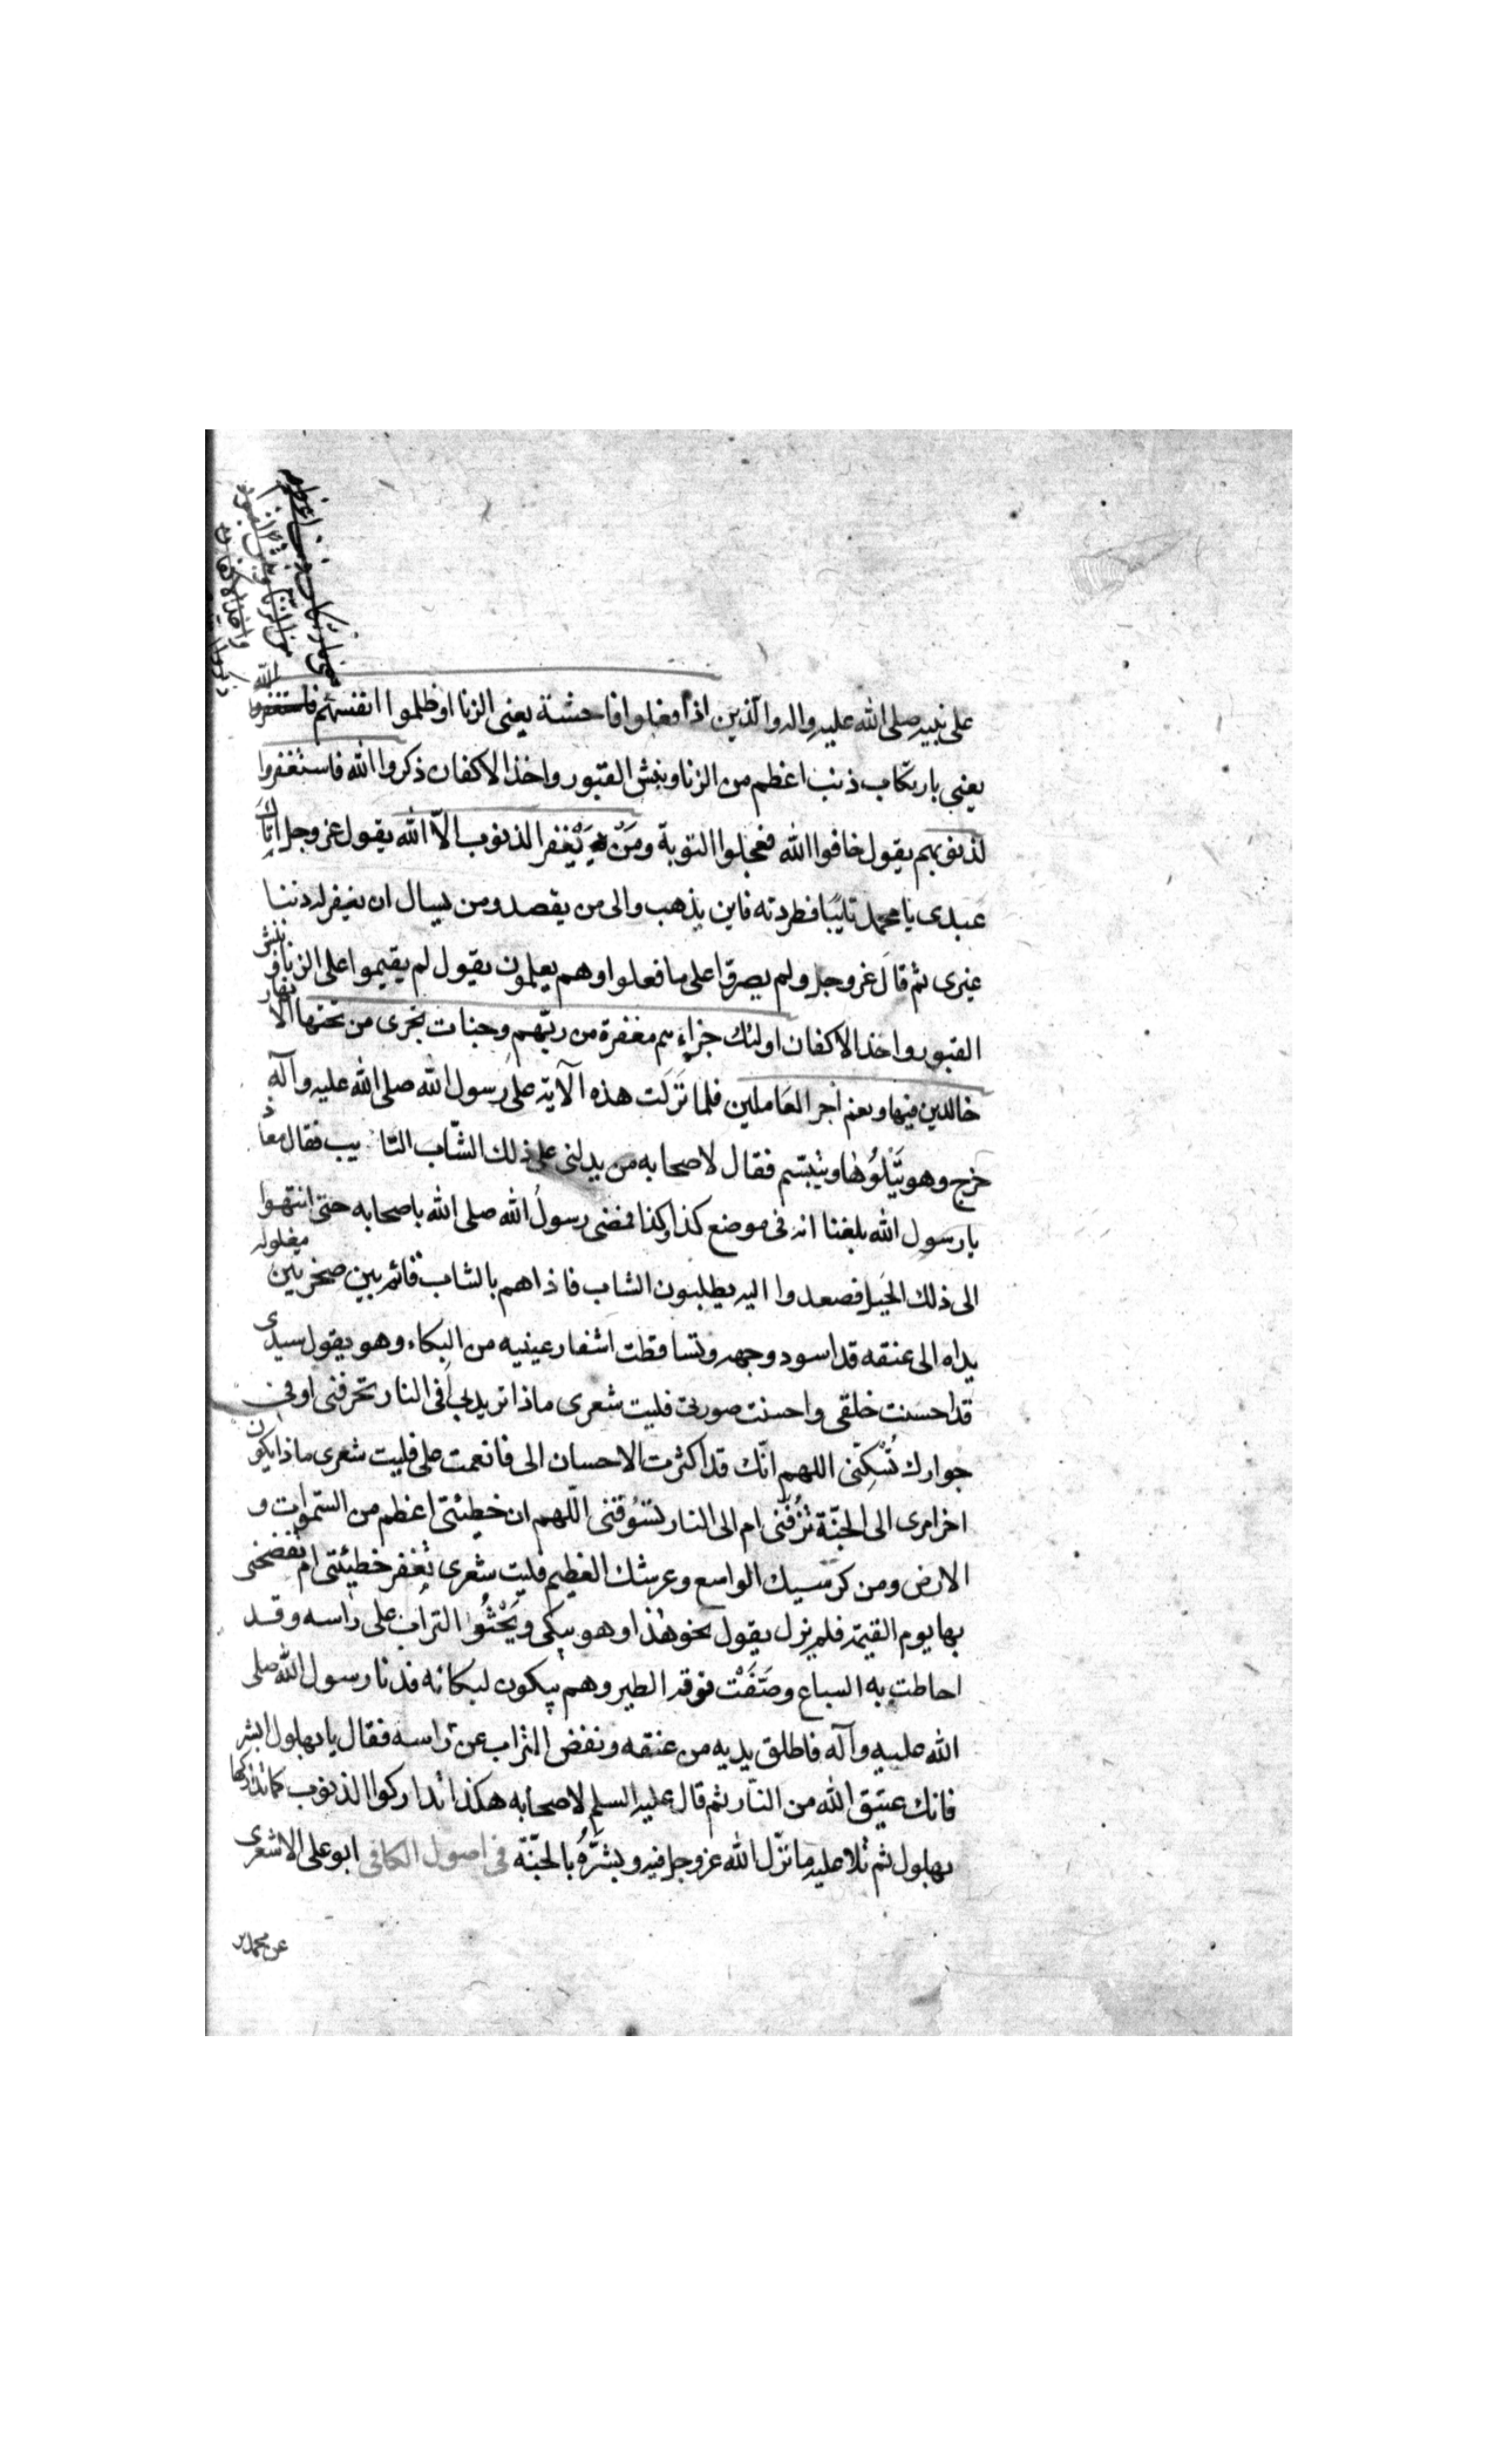 على نبيه صلى الله عليه واله والذين اذا فعلوا فاحشة يعنى الزنا او ظلموا انفسهم فاستغفروا الله
يعنى بارتكاب ذنب اعظم من الزنا وبنش القبور واخذ الاكفان ذكروا الله فاستغفروا
لذنوبهم يقول خافوا الله فعجلوا التوبة ومَنْ يَغْفر الذنوب الّا الله يقول عز وجل اتاك
عبدى يا محمد تايبًا فطردته فاين يذهب والى من يقصد ومن يسال ان يغفر له ذنبا
غيرى ثم قال عز وجل ولم يصروا على ما فعلوا وهم يعلمون يقول لم يقيموا على الزنا ونبش
القبور واخذ الاكفان اولئك جزاءهم مغفرة من ربّهم وجنات تجرى من تحتها الانهار
خالدين فيها ونعم اجر العَاملين فلما نَزَلَت هذه الآية على رَسول الله صلى الله عليه وآله
خرج وهو يَتْلُوْهَا ويتبسّم فقال لاصحابه من يدلنى على ذلك الشّاب التائيب فقال معاذ
يا رسول الله بلغنا انه فى موضع كذا وكذا فمضى رسولُ الله صلى الله باصحابه حتى انتهوا
الى ذلك الجَبل فصعدوا اليه يطلبون الشاب فاذا هم بالشاب قائم بين صخرتين مغلوله
يداه الى عنقه قد اسود وجهه وتساقطت اشفار عينيه من البكاء وهو يقول سيدى
قد احسنت خلقى واحسنت صورتى فليت شعرى ماذا تريد بى اَفى النار تحرقنى او فى
جوارك تُسْكِنّى اللهم انّك قد اكثرت الاحسان الى فانعمت على فليت شعرى ماذا يكون
اخر امرى الى الجنّة تَزُفّنى ام الى النار تسُوقنى اللّهم ان خطيئتى اعظم من السّموات و
الارض ومن كرسيك الواسع وعرشك العظيم فليت شعرى تغفر خطيئتى ام تفضحنى
بها يوم القيمة فلم يزل يقول نحو هٰذا وهو يبكى ويَحْثُوا التراب على راسه وقد
احاطت به السباع وصَفَّتْ فوقه الطير وهم يبكون لبكائه فدنا رسول الله صلى
الله عليه وآله فاطلق يديه من عنقه ونفض التراب عن راسه فقال يا بهلول ابشر
فانك عتيق الله من النّار ثم قال عليه السلم لاصحابه هكذا تداركوا الذنوب كما تداركها
بهلول ثم تلا عليه ما نزّل الله عز وجل فيه وبشّرَهُ بالجنّة فى اصول الكافى ابو على الاشعرى
عن محمد بن